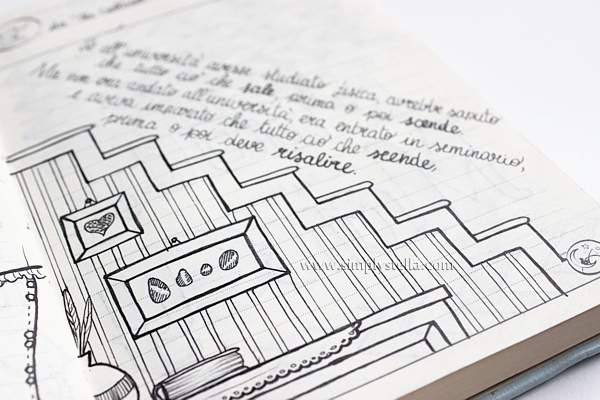 Se all'università avesse studiato fisica, avrebbe saputo
che tutto ciò che sale prima o poi scende.
Ma non era andato all'università, era entrato in seminario,
e aveva imparato che tutto ciò che scende,
prima o poi deve risalire.
www.simplystella.com